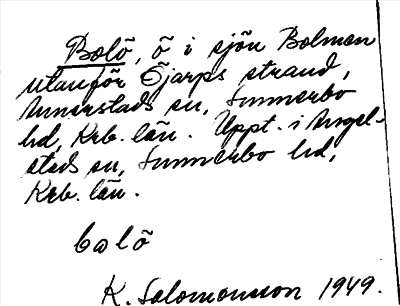 Bolö, ö i sjön Bolmen
utanför Öjarps strand,
Annerstads sn, Sunnerbo
hd, Krb. län. Uppt. i Angel-
stads sn, Sunnerbo hd,
Krb. län.
bolö
K. Salomonsson 1949.